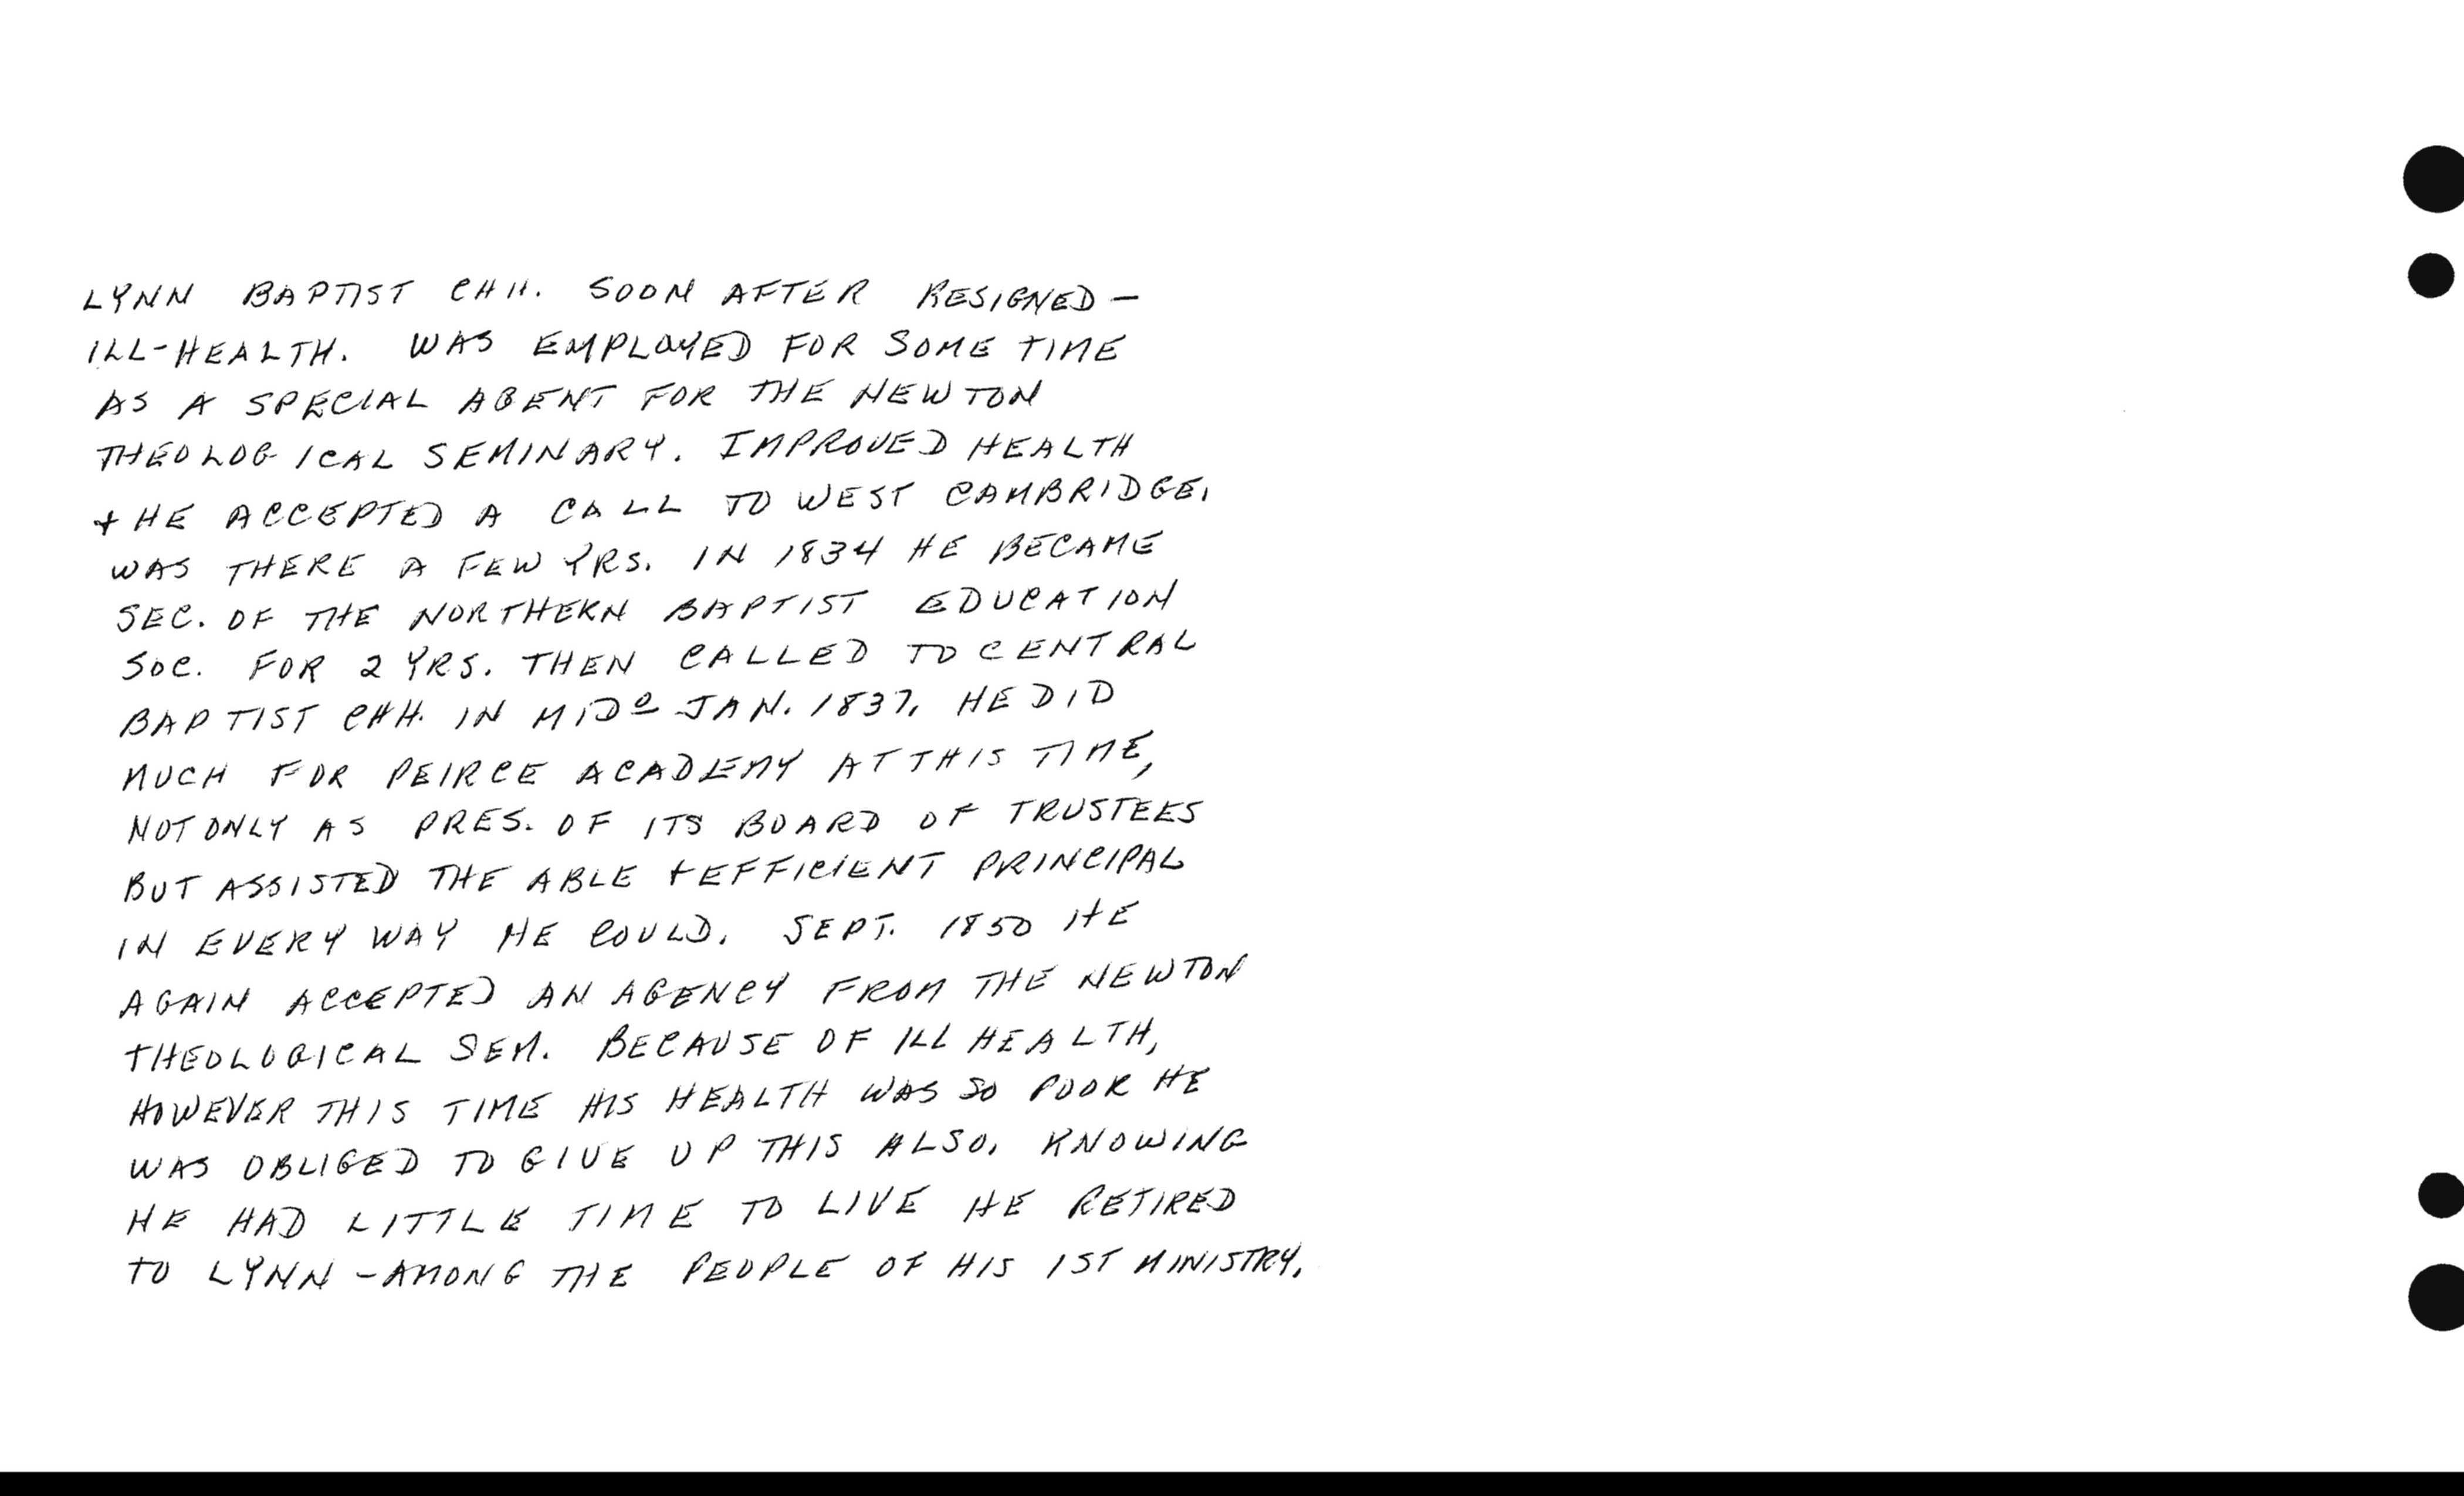 LYNN BAPTIST CHH. SOON AFTER RESIGNED —
ILL-HEALTH. WAS EMPLOYED FOR SOME TIME
AS A SPECIAL AGENT FOR THE NEWTON
THEOLOGICAL SEMINARY. IMPROVED HEALTH
+ HE ACCEPTED A CALL TO WEST CAMBRIDGE.
WAS THERE A FEW YRS. IN 1834 HE BECAME
SEC. OF THE NORTHERN BAPTIST EDUCATION
SOC. FOR 2 YRS. THEN CALLED TO CENTRAL
BAPTIST CHH. IN MIDo JAN. 1837. HE DID
MUCH FOR PEIRCE ACADEMY AT THIS TIME,
NOT ONLY AS PRES. OF ITS BOARD OF TRUSTEES
BUT ASSISTED THE ABLE + EFFICIENT PRINCIPAL
IN EVERY WAY HE COULD. SEPT. 1850 HE
AGAIN ACCEPTED AN AGENCY FROM THE NEWTON
THEOLOGICAL SEM. BECAUSE OF ILL HEALTH,
HOWEVER THIS TIME HIS HEALTH WAS SO POOR HE
WAS OBLIGED TO GIVE UP THIS ALSO. KNOWING
HE HAD LITTLE TIME TO LIVE HE RETIRED
TO LYNN - AMONG THE PEOPLE OF HIS 1ST MINISTRY.